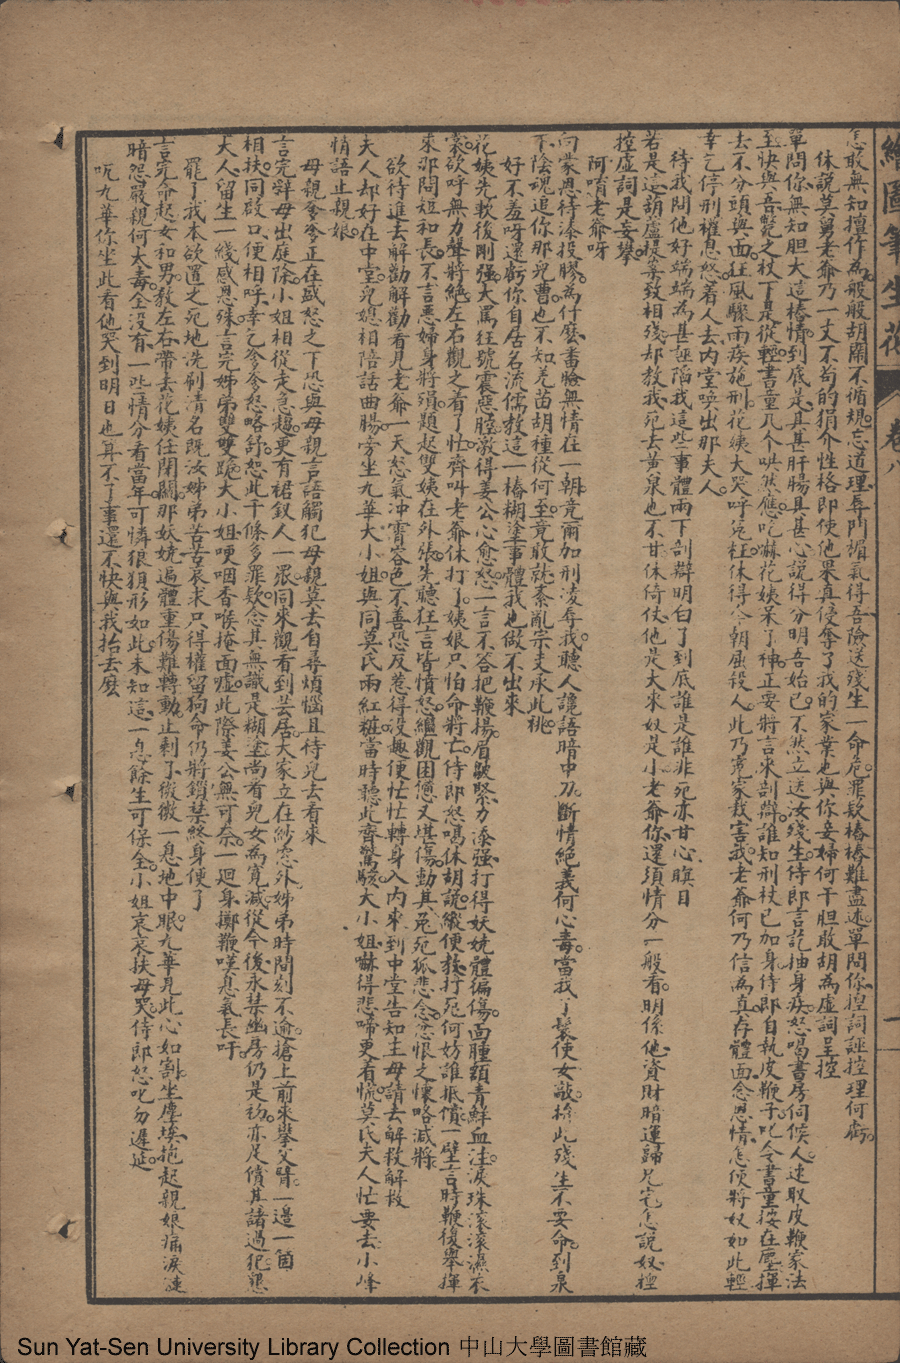 繪圖筆生花 卷八 一
怎敢無知擅作為般般胡鬧不循規忘道理辱門楣氣得吾險送殘生一命危罪欸樁樁難盡述單問你揑詞誣控理何虧
休説莫舅老爺乃一丈不苟的狷介性格即使他果真侵奪了我的家業也與你妾婦何干胆敢胡為虛詞呈控
單問你無知胆大這樁情到底是具甚肝腸具甚心説得分明吾始已不然立送汝殘生侍郎言訖抽身疾怒喝書房伺候人速取皮鞭家法
至快與吾斃之杖下是從輕書童几个哄然應吃嚇花姨呆了神正要將言來剖辯誰知刑杖已加身侍郎自執皮鞭子叱令書童按在塵揮
去不分頭與面狂風驟雨疾施刑花姨大哭呼寃枉休得今朝屈殺人此乃寃家栽害我老爺何乃信為真存體面念恩情怎便將奴如此輕
幸乞停刑權息怒着人去内堂喚出那夫人
待我問他好端端為甚誣陷我這些事體兩下剖辯明白了到底誰是誰非死亦甘心瞑目
若是這葫蘆提葉致相殘却教我死去黃泉也不甘休倚仗他是大來奴是小老爺你還須情分一般看明係他資財暗運歸兄宅怎説奴裡
控虛詞是妄攀
阿唷老爺呀
向蒙恩待漆投膠為什麽畫臉無情在一朝竟爾加刑凌辱我聽人讒語暗中刀斷情絕義何心毒當我丫鬟使女敲捨此殘生不要命到泉
下陰魂追你那兒曹也不知羌苗胡種從何至竟敢就紊亂宗支承此祧
好不羞呀還虧你自居名流儒教這一樁糊塗事體我也做不出來
花姨先軟後剛強大罵狂號震惡腔激得姜公心愈怒一言不答把鞭揚眉皺緊力添强打得妖嬈體徧傷面腫頭青鮮血注淚珠滾滾濕衣
裳欲呼無力聲將絶左右觀之着了忙齊叫老爺休打了姨娘只怕命將亡侍郎怒喝休胡説縱便教打死何妨誰抵償一壁言時鞭復舉揮
來那問短和長不言悪婦身將殞題起雙姨在外張先聽狂言皆憤怒繼觀困憊又堪傷動其兎死狐悲念忿恨之懷略減將
欲待進去解勸解勸看見老爺一天怒氣冲霄容色不善恐反惹得沒趣便忙忙轉身入内來到中堂告知主母請去解救解救
夫人却好在中堂兒媳相陪話曲腸旁坐九華大小姐與同莫氏兩紅粧當時聽此齊驚駭大小姐嚇得悲啼更着慌莫氏夫人忙要去小峰
情語止親娘
母親爹爹正在盛怒之下恐與母親言語觸犯母親莫去自尋煩惱且待兒去看來
言完辭母出庭除小姐相從走急趨更有裙釵人一眾同來觀看到芸居大家立在紗窓外姊弟時間刻不逾搶上前來攀父臂一邊一箇
相扶同啟口便相呼幸乞爹爹怒略舒恕此千條多罪欸念其無識是糊塗尚看兒女為寬減從今後永禁幽房仍是初亦足償其諸過犯懇
大人留生一綫感恩殊言完姊弟雙雙跪大小姐哽咽香喉掩面嘘此際姜公無可奈一迴身擲鞭嘆息氣長吁
罷了我本欲置之死地洗刷清名既汝姊弟苦苦哀求只得權留狗命仍將鎖禁終身便了
言完命起女和男教左右帶去花姨任閉關那妖嬈遍體重傷難轉動止剩了微微一息地中眠九華見此心如割坐塵埃抱起親娘痛淚漣
暗怨嚴親何太毒全沒有一些情分看當年可憐狼狽形如此未知這一息餘生可保全小姐哀哀扶母哭侍郎怒叱勿遲延
吭九華你坐此看他哭到明日也算不了事還不快與我抬去麽
Sun Yat-Sen University Library Collection 中山大學圖書館藏